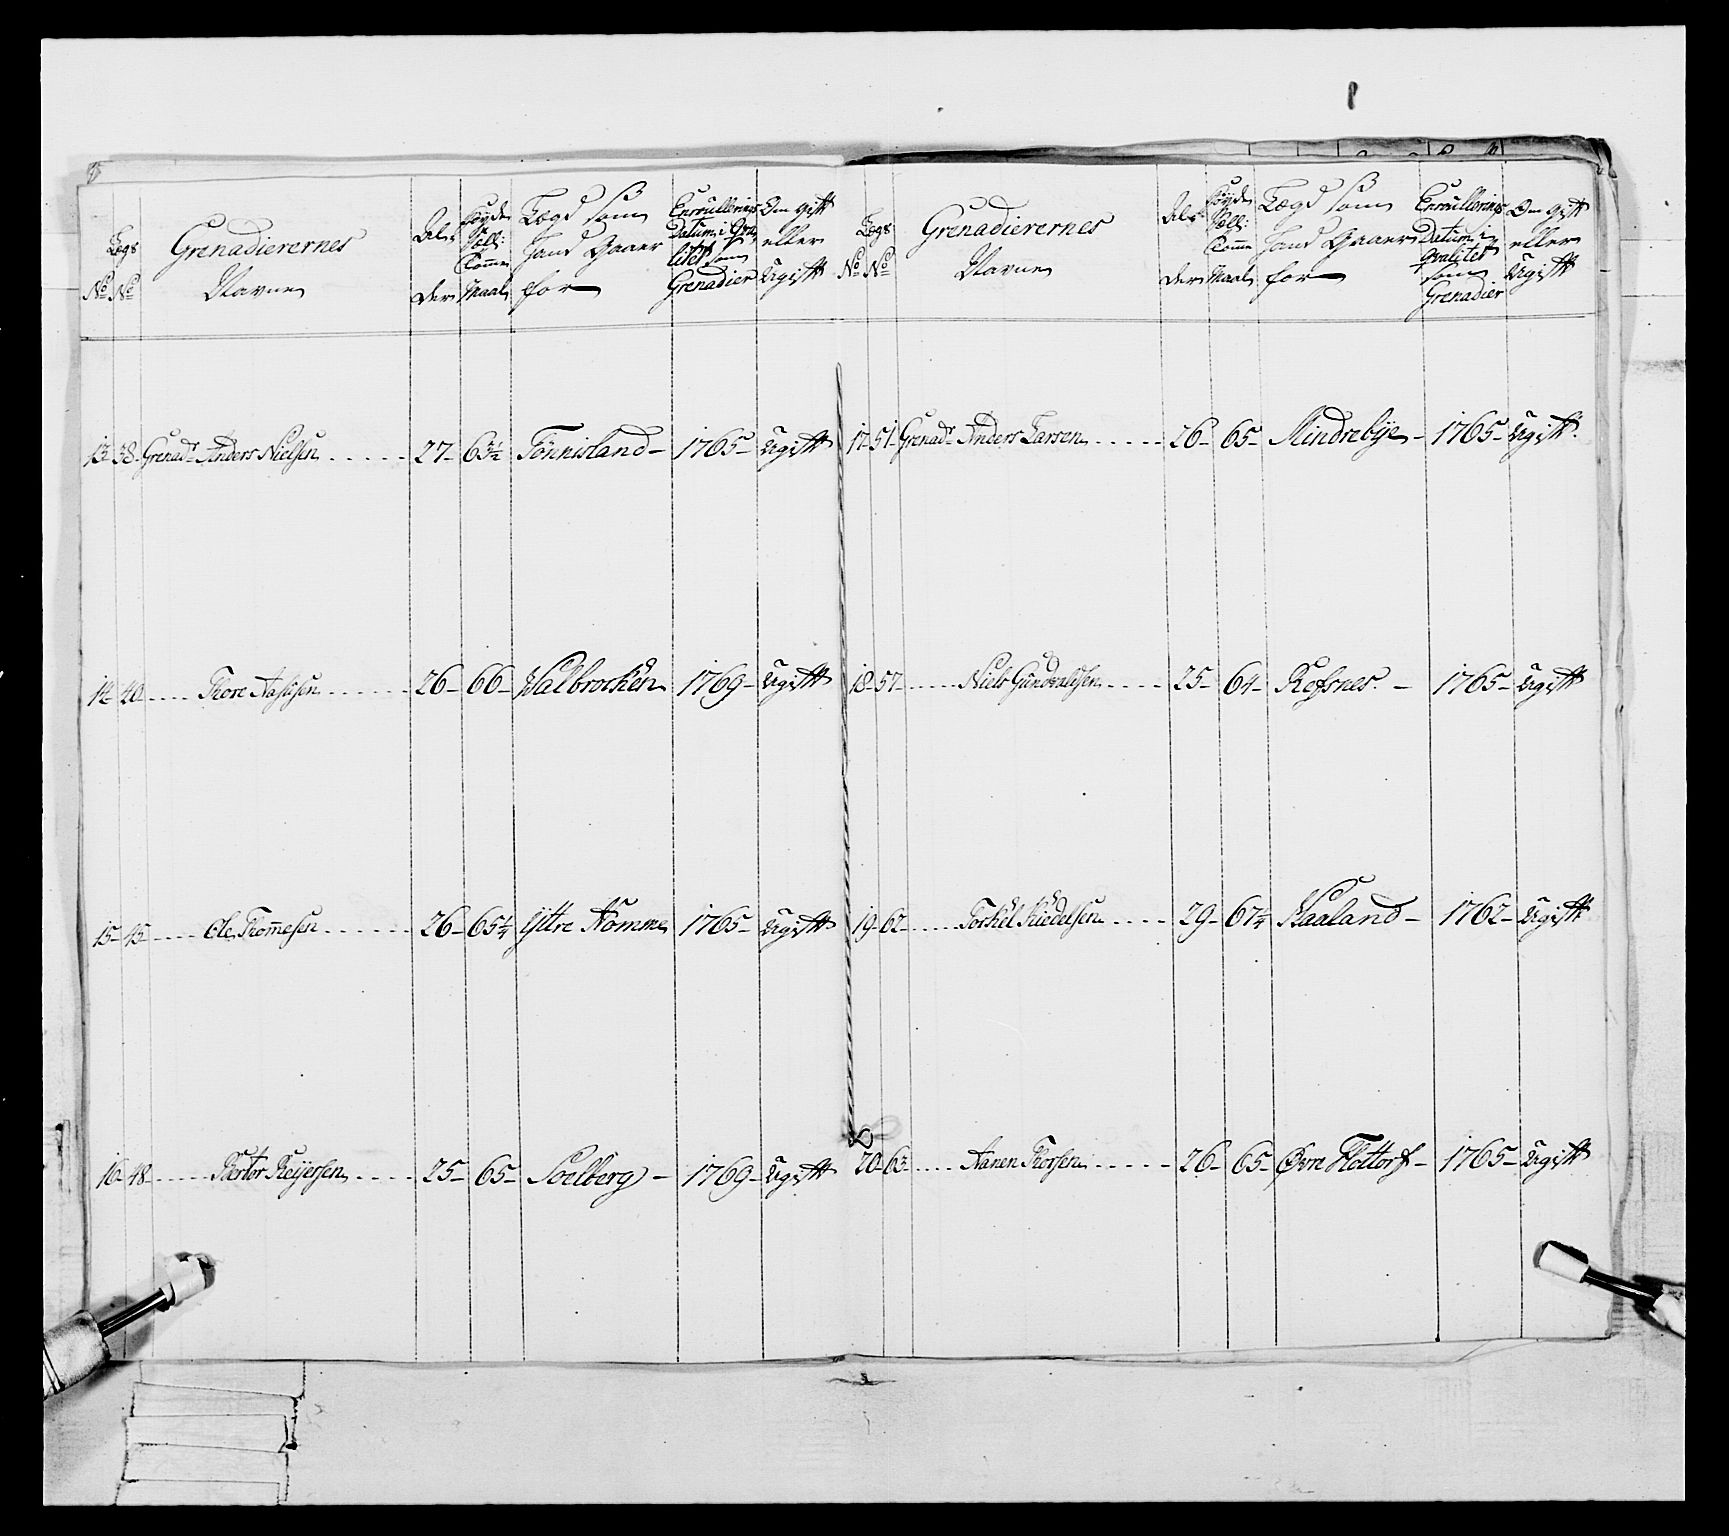 8
Lægs
No No
Grenadierernes
Navne
Al-
der
Høyde
Maal
Lægd som
hand staaer
for
Enroullerings
Datum i Qva-
litet som
Grenadier
Om gift
eller
Ugift
13- 38- Grenadr Anders Nielsen 27- 63½ Tönnisland- 1765- Ugift
14- 40- Thore Aasulsen 26- 66- Walbrocken 1769- Ugift
15- 45- Ole Thommesen 26- 65¼ Yttre Homme 1765- Ugift
16- 48- Reijersen 25- 65- Soelberg- 1769- Ugift
Lægs
No No
Grenadierernes
Navne
Al-
der
Høyde
Maal
Lægd som
hand staaer
for
Enroullerings
Datum i
Qvalitet
som
Grenadier
Om gift
eller
Ugift
17- 51- Grenadr Anders Larsen 26- 65- Mindreböe- 1765- Ugift
18- 57- Niels Gundvaldsen 25- 64- Rofsnes- 1765- Ugift
19- 62- Torkel Kiedelsen 29- 67¼ Kaaland- 1762- Ugift
20- 63- Aanen Thorsen 26- 65- Øvre Flottorp- 1765- Ugift